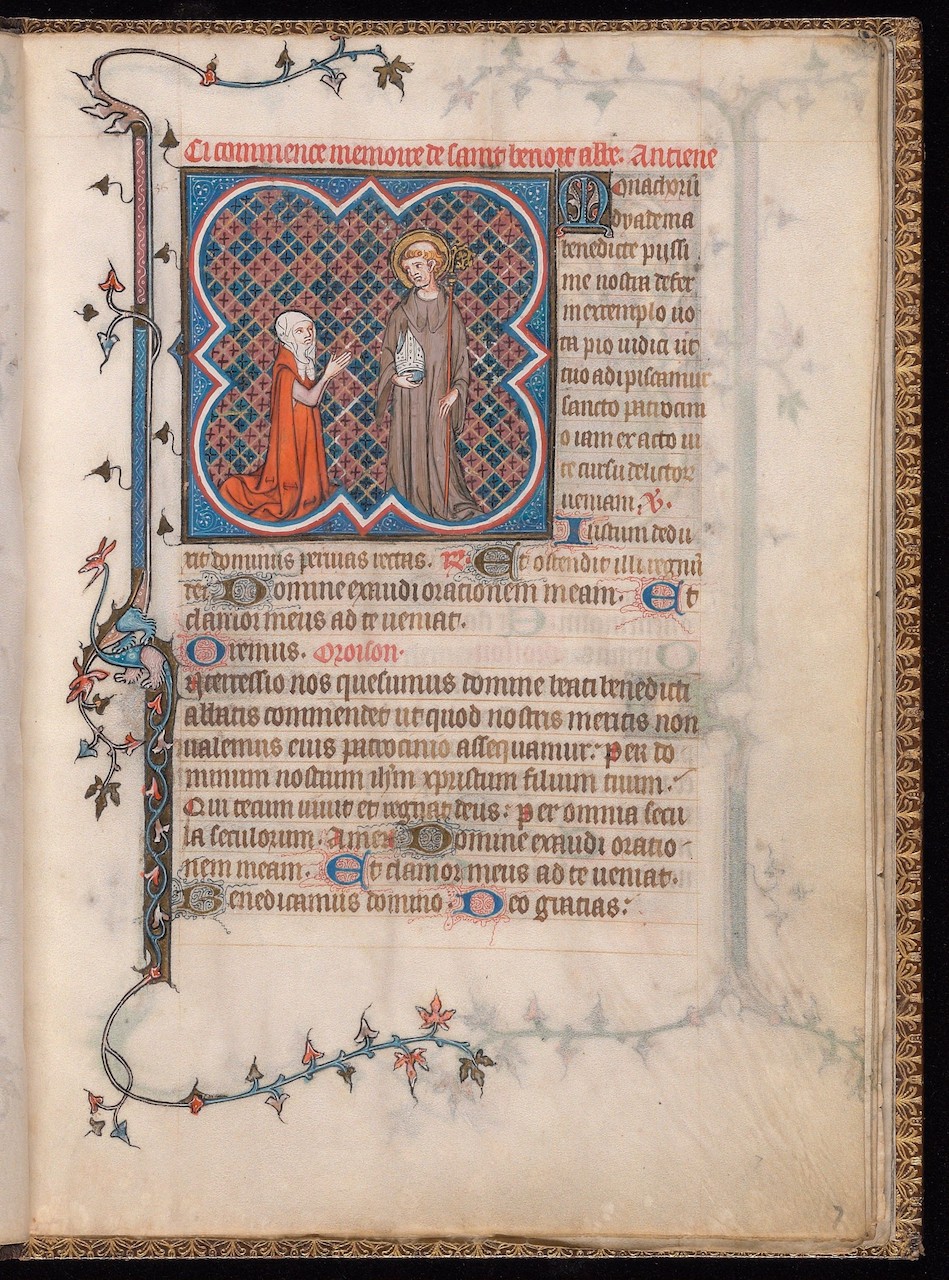 Ci commence memoire de saint benoit abbe. Antiene
Monachorū
dyadema
benedicte pijssi
me nostra defer
in extemplo uo
ta pio iudici ut
tuo adipiscamur
sancto patrocini
o iam exacto ui
te cursu delictor
ueniam. V.
Iustum dedu
xit dominus per uias rectas. R. Et ostendit illi regnū
dei Domine exaudi orationem meam. Et
clamor meus ad te ueniat.
Oremus. Oroison.
Intercessio nos quesumus domine beati benedicti
abbatis commendet ut quod nostris meritis non
ualemus eius patrocinio assequamur. Per do
minum nostrum ihm xpristum filium tuum.
Qui tecum uiuit et regnat deus. Per omnia secu
la seculorum. Amen Domine exaudi oratio
nem meam. Et clamor meus ad te ueniat.
Benedicamus domino. Deo gracias.
7